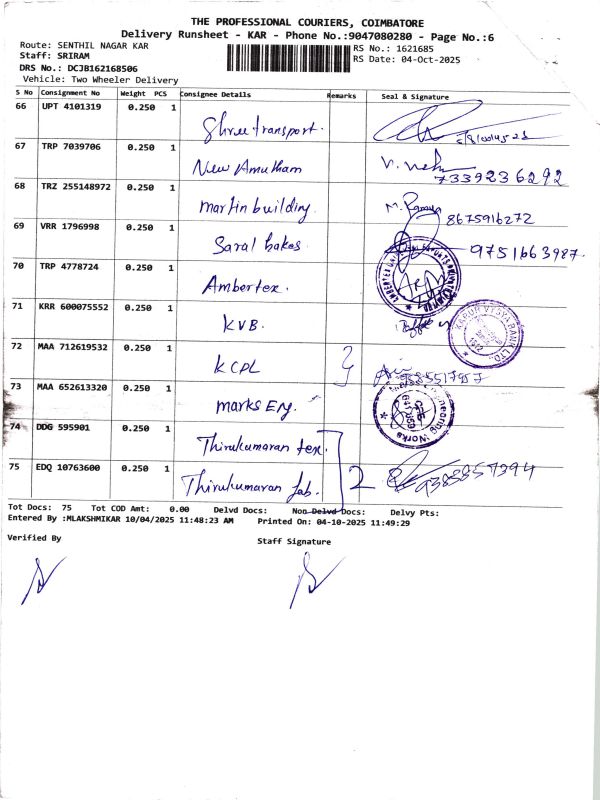 THE PROFESSIONAL COURIERS, COIMBATORE
Delivery Runsheet - KAR - Phone No.:9047080280 - Page No.:6
Route: SENTHIL NAGAR KAR RS No.: 1621685
Staff: SRIRAM RS Date: 04-Oct-2025
DRS No.: DCJB162168506
Vehicle: Two Wheeler Delivery
S No Consignment No Weight PCS Consignee Details Remarks Seal & Signature
66 UPT 4101319 0.250 1 Shree transport.
67 TRP 7039706 0.250 1 New Amutham 7339236292
68 TRZ 255148972 0.250 1 Martin building. M. Ramya 8675916272
69 VRR 1796998 0.250 1 Saral bakes 9751663987.
70 TRP 4778724 0.250 1 Ambertex.
71 KRR 600075552 0.250 1 KVB. KARUR VYSYA BANK LTD.
72 MAA 712619532 0.250 1 KCPL
73 MAA 652613320 0.250 1 Marks Eng. Engineering Works
74 DDG 595901 0.250 1 Thirukumaran tex.
75 EDQ 10763600 0.250 1 Thirukumaran fab. 2
Tot Docs: 75 Tot COD Amt: 0.00 Delvd Docs: Non Delvd Docs: Delvy Pts:
Entered By :MLAKSHMIKAR 10/04/2025 11:48:23 AM Printed On: 04-10-2025 11:49:29
Verified By Staff Signature